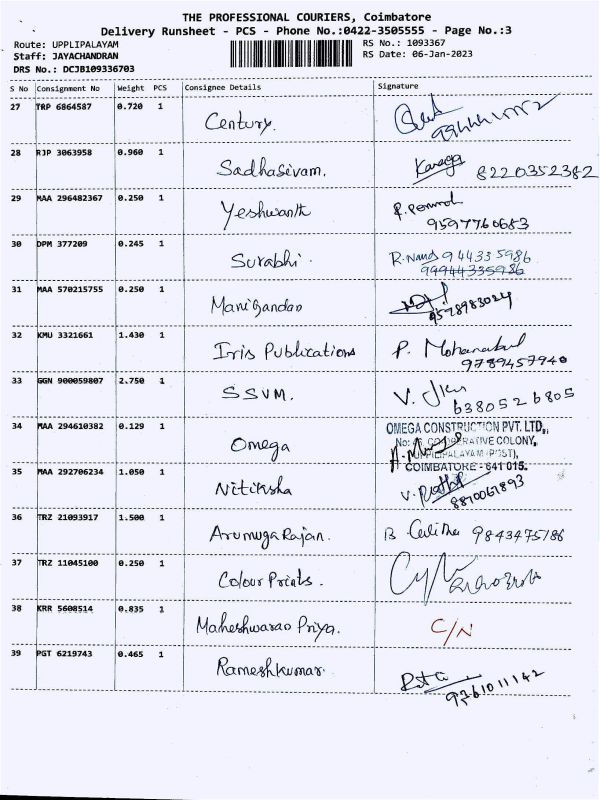 THE PROFESSIONAL COURIERS, Coimbatore
Delivery Runsheet - PCS - Phone No.:0422-3505555 - Page No.:3
Route: UPPLIPALAYAM
Staff: JAYACHANDRAN
DRS No.: DCJB109336703
RS No.: 1093367
RS Date: 06-Jan-2023
S No Consignment No Weight PCS Consignee Details Signature
27 TRP 6864587 0.720 1 Century.
28 RJP 3063958 0.960 1 Sadhasivam. 8220352382
29 MAA 296482367 0.250 1 Yeshwanth
9597760683
30 DPM 377209 0.245 1 Surabhi. R. Nand 944335986
99944335986
31 MAA 570215755 0.250 1 Manigandan
9578983024
32 KMU 3321661 1.430 1 Iris Publications P.
9789457940
33 GGN 900059807 2.750 1 SSVM. V.
6380526805
34 MAA 294610382 0.129 1 Omega
OMEGA CONSTRUCTION PVT. LTD.,
COOPERATIVE COLONY,
UPPILIPALAYAM (POST),
COIMBATORE - 641 015.
35 MAA 292706234 1.050 1 Nitiksha V.
8870061893
36 TRZ 21093917 1.500 1 ArumugaRajan. B 9843475186
37 TRZ 11045100 0.250 1 Colour Prints.
38 KRR 5608514 0.835 1 Maheshwaran Priya. C/N
39 PGT 6219743 0.465 1 Rameshkumar.
9361011142